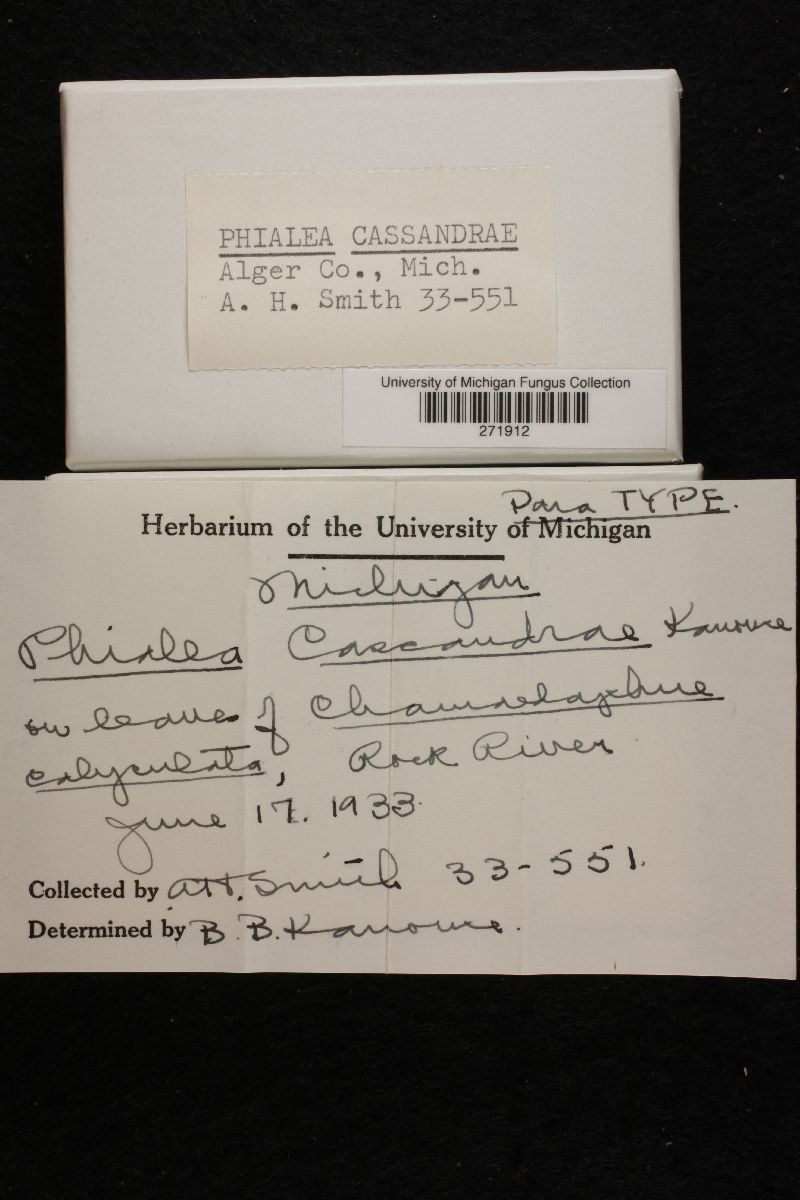 PHIALEA CASSANDRAE
Alger Co., Mich.
A. H. Smith 33-551
University of Michigan Fungus Collection
271912
Para TYPE.
Herbarium of the University of Michigan
Michigan
Phialea Cassandrae Kanouse
on leaves of Chamaedaphne
calyculata, Rock River
June 17. 1933.
Collected by A.H. Smith 33-551.
Determined by B. B. Kanouse.